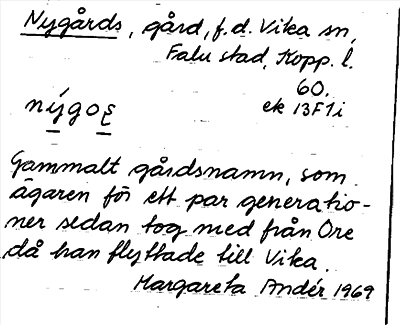 Nygårds, gård, f.d. Vika sn,
Falu stad, Kopp. l.
60.
ek 13F1i
nýgoş
Gammalt gårdsnamn, som
ägaren för ett par generatio-
ner sedan tog med från Ore
då han flyttade till Vika.
Margareta Andér 1969